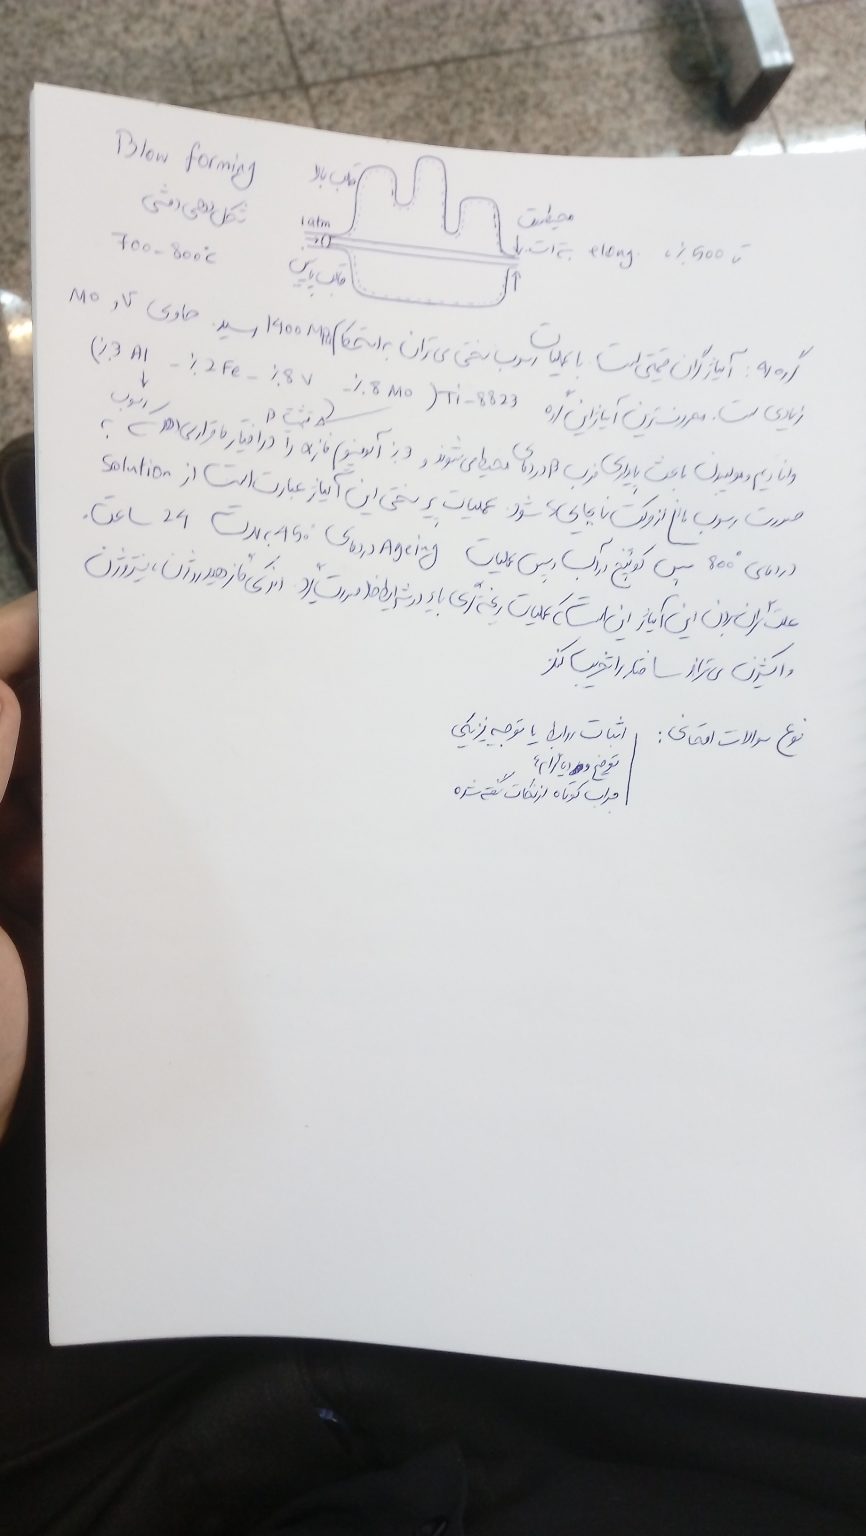 Blow forming
شکل دهی دمشی
700-800°c
قالب بالا
1 atm
قالب پایین
محیط
تا 500٪ elong. به
گروه 4: آلیاژ گران قیمتی است. با عملیات رسوب سختی می‌توان به استحکام 1400 MPa رسید. حاوی V و Mo
زیادی است. معروفترین آلیاژ این گروه Ti-8823 (8 Mo٪ - 8 V٪ - 2 Fe٪ - 3 Al٪)
تثبیت β
رسوب
وانادیم و مولیبدن باعث پایداری فاز β در دمای محیط می‌شوند و 3٪ آلومینیوم فاز α را در اختیار ما قرار می‌دهد که به
صورت رسوب مانع از حرکت نابجایی می‌شود. عملیات پیر سختی این آلیاژ عبارت است از Solution
در دمای 800° سپس کوئنچ در آب و سپس عملیات Ageing در دمای 450° به مدت 24 ساعت.
علت گران بودن این آلیاژ این است که عملیات ریخته‌گری باید در شرایط خلا صورت گیرد. اندکی گاز هیدروژن، نیتروژن
و اکسیژن می‌تواند ساختار را تخریب کند
نوع سوالات امتحانی:
اثبات روابط یا توجیه فیزیکی
توضیح
جواب کوتاه از نکات گفته شده